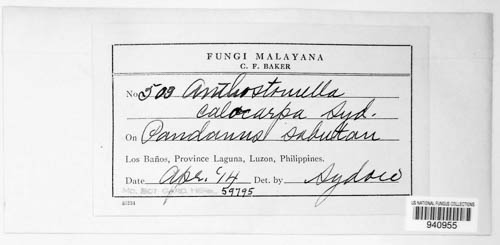 FUNGI MALAYANA
C. F. BAKER
No. 503 Anthostomella
calocarpa Syd.
On Pandanus sabutan
Los Baños, Province Laguna, Luzon, Philippines.
Date Apr. '14 Det. by Sydow
MO. BOT. GARD. HERB. 59795
US NATIONAL FUNGUS COLLECTIONS
940955